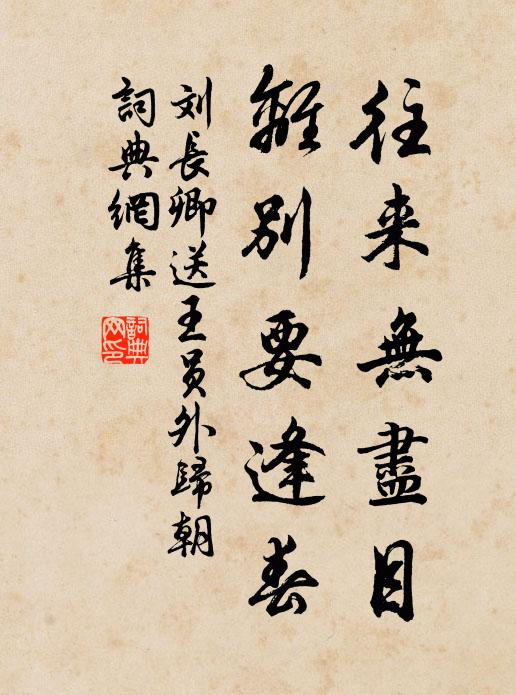 往来無盡目
離別要逢春
刘長卿送王员外歸朝
詞典網集
詞典网印